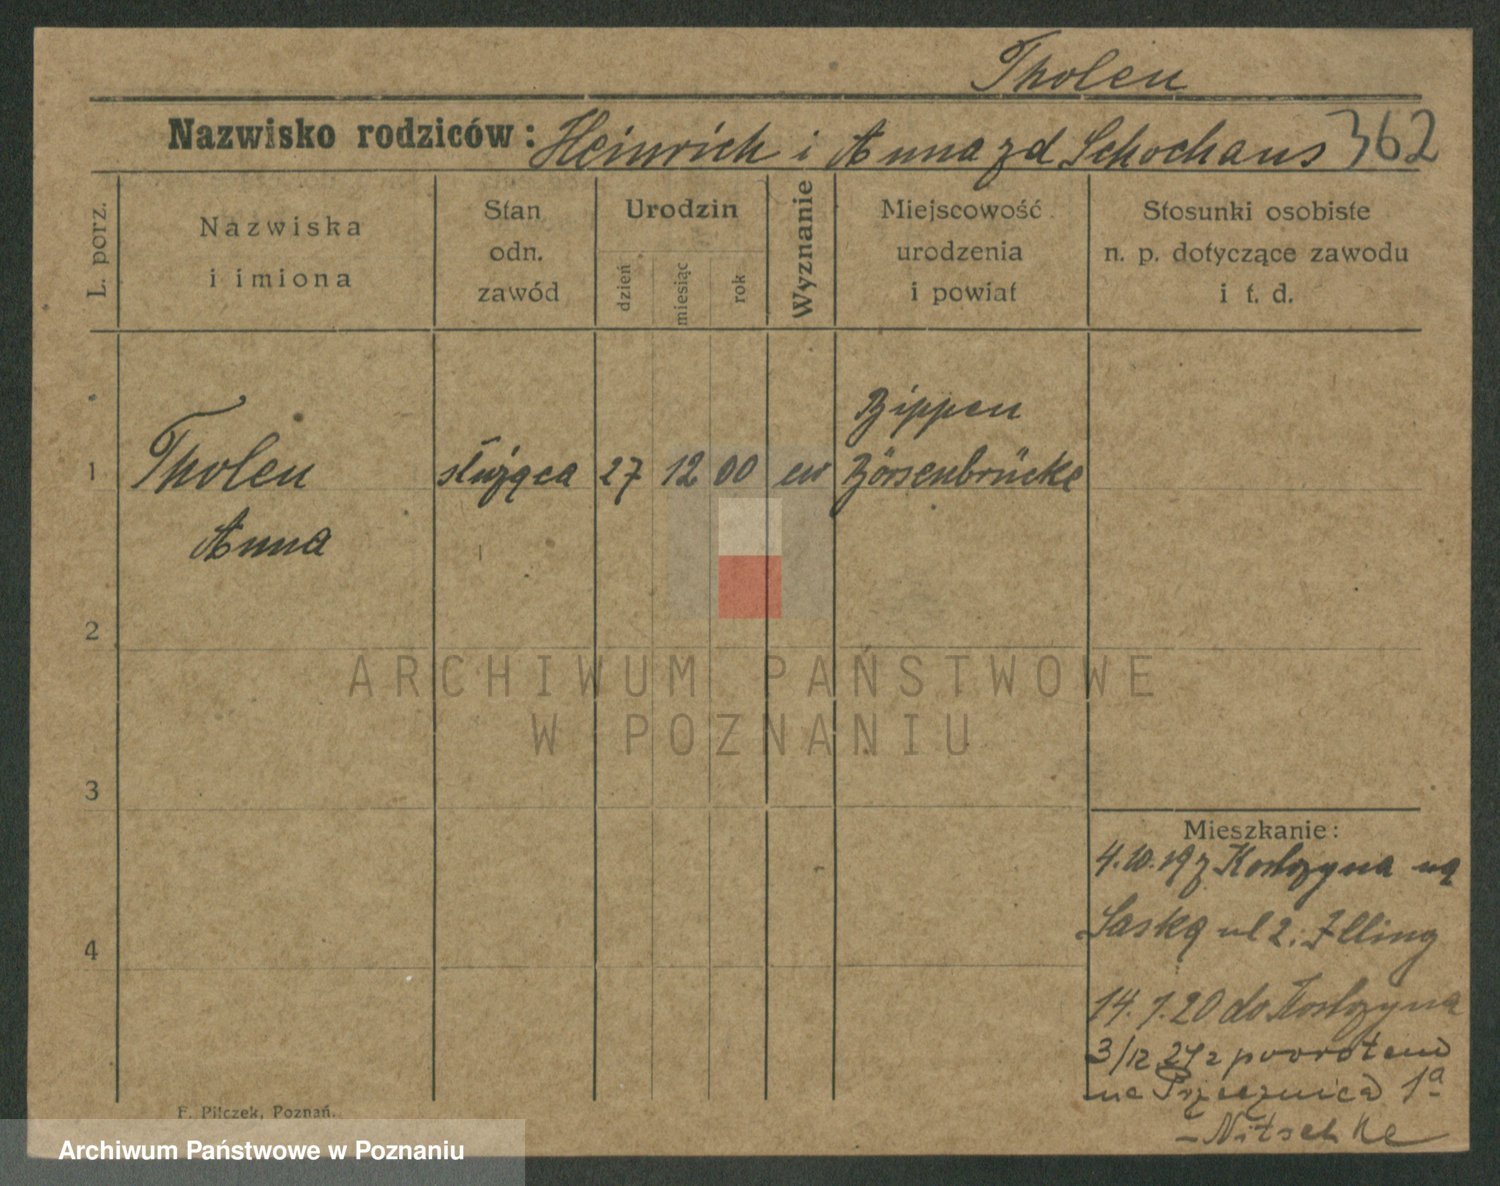 Tholen
Nazwisko rodziców: Heinrich i Anna zd Schochaus 362
L. porz.
Nazwiska
i imiona
Stan
odn.
zawód
Urodzin
dzień
miesiąc
rok
Wyznanie
Miejscowość
urodzenia
i powiat
Stosunki osobiste
n. p. dotyczące zawodu
i t. d.
Zippen
1 Tholen służąca 27 12 00 ew Börsenbrücke
Anna
2
ARCHIWUM PAŃSTWOWE
W POZNANIU
3
Mieszkanie:
4.10.19 z Kostrzyna na
Saską ul 2. Illing
4
14.1.20 do Kostrzyna
3/12 21 z powrotem
na 1a
- Nitschke
F. Pilczek, Poznań.
Archiwum Państwowe w Poznaniu